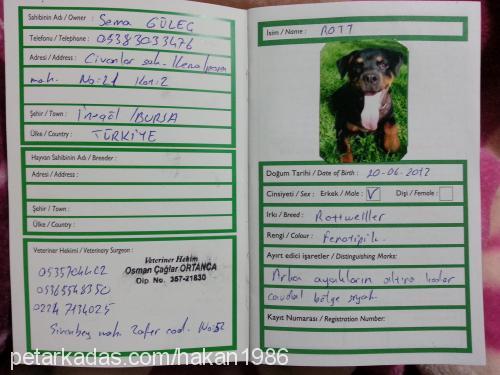 Sahibinin Adı / Owner : Sema GÜLEÇ
Telefonu / Telephone : 05383033476
Adresi / Address : Civanlar sok. Kemalpaşa
mah. No:21 Kat:2
Şehir / Town : İnegöl / BURSA
Ülke / Country : TÜRKİYE
Hayvan Sahibinin Adı / Breeder :
Adresi / Address :
Şehir / Town :
Ülke / Country :
Veteriner Hekimi / Veterinary Surgeon :
Veteriner Hekim
Osman Çağlar ORTANCA
Dip. No. 357-21830
0224 7134025
mah. Zafer cad. No:52
İsim / Name : ROTT
Doğum Tarihi / Date of Birth : 20-06-2012
Cinsiyeti / Sex : Erkek / Male : Dişi / Female :
Irkı / Breed : Rottweiller
Rengi / Colour : Fenotipik
Ayırt edici işaretler / Distinguishing Marks:
Arka ayakların altına kadar
caudal bölge siyah.
Kayıt Numarası / Registration Number:
petarkadas.com/hakan1986